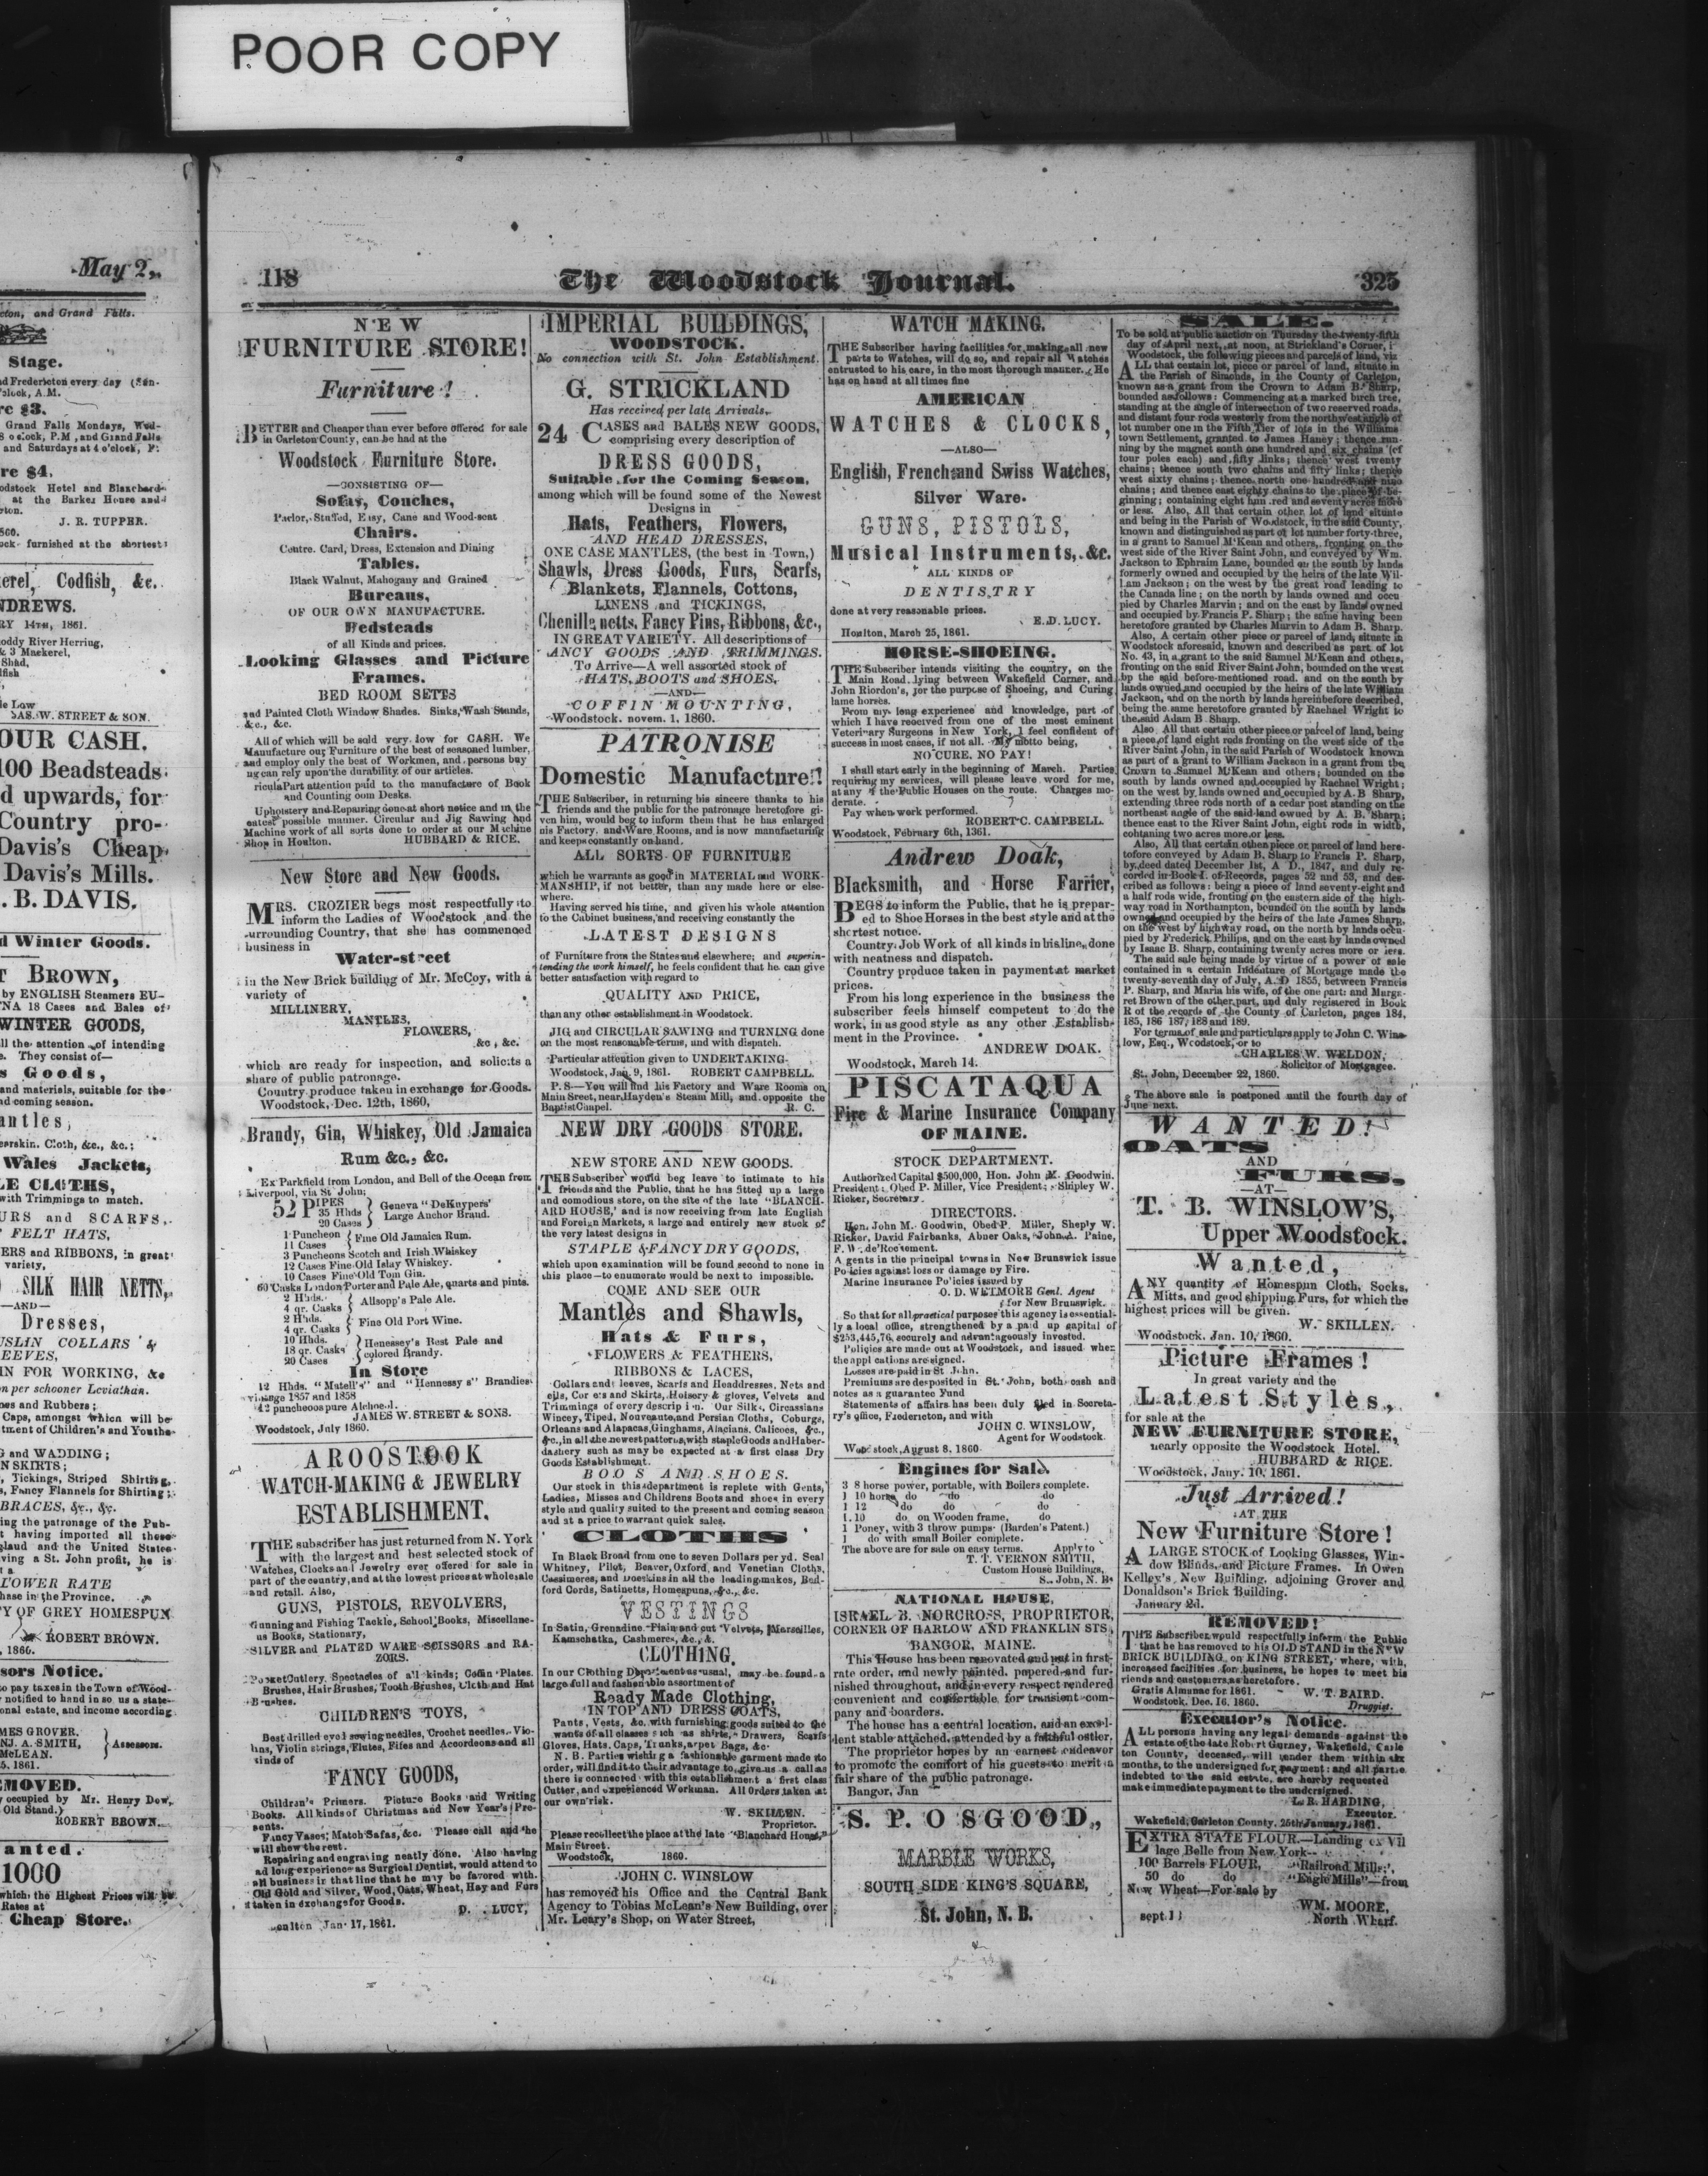 POOR COPY
May 2,
cton, and Grand Falls.
Stage.
nd Fredericton every day (Sun-
o'clock, A.M.
re $3.
Grand Falls Mondays, Wed-
8 o'clock, P.M., and Grand Falls
and Saturdays at 4 o'clock, P.
re $4.
odstock Hotel and Blanchard
at the Barker House and
rton.
J. R. TUPPER.
860.
ock furnished at the shortest
erel, Codfish, &c.
NDREWS.
RY 14TH, 1861.
oddy River Herring,
& 3 Mackerel,
Shad,
lfish
le Low
JAS. W. STREET & SON.
OUR CASH.
100 Beadsteads
d upwards, for
Country pro-
Davis's Cheap
Davis's Mills.
. B. DAVIS.
d Winter Goods.
T BROWN,
by ENGLISH Steamers EU-
NA 18 Cases and Bales of
WINTER GOODS,
ll the attention of intending
e. They consist of—
s Goods,
and materials, suitable for the
nd coming season.
antles,
erskin. Cloth, &c., &c.;
Wales Jackets,
LE CLOTHS,
with Trimmings to match.
URS and SCARFS,
FELT HATS,
ERS and RIBBONS, in great
variety,
SILK HAIR NETTS,
—AND—
Dresses,
USLIN COLLARS &
EEVES,
IN FOR WORKING, &c
n per schooner Leviathan.
oes and Rubbers;
Caps, amongst which will be
tment of Children's and Youths
G and WADDING;
N SKIRTS;
, Tickings, Striped Shirting,
s, Fancy Flannels for Shirting;
BRACES, &c., &c.
ing the patronage of the Pub-
t having imported all these
gland and the United States
ving a St. John profit, he is
t a
LOWER RATE
hase in the Province.
Y OF GREY HOMESPUN
ROBERT BROWN.
, 1860.
sors Notice.
o pay taxes in the Town of Wood-
notified to hand in to us a state-
onal estate, and income according
MES GROVER,
NJ. A. SMITH, } Assessors.
McLEAN.
5, 1861.
EMOVED.
occupied by Mr. Henry Dow,
Old Stand.)
ROBERT BROWN.
anted.
1000
which the Highest Prices will be
Rates at
Cheap Store.
118 The Woodstock Journal. 325
NEW
FURNITURE STORE!
Furniture!
BETTER and Cheaper than ever before offered for sale
in Carleton County, can be had at the
Woodstock Furniture Store.
—CONSISTING OF—
Sofas, Couches,
Parlor, Stuffed, Easy, Cane and Wood-seat
Chairs.
Centre. Card, Dress, Extension and Dining
Tables.
Black Walnut, Mahogany and Grained
Bureaus,
OF OUR OWN MANUFACTURE.
Bedsteads
of all Kinds and prices.
Looking Glasses and Picture
Frames.
BED ROOM SETTS
and Painted Cloth Window Shades. Sinks, Wash Stands,
&c., &c.
All of which will be sold very low for CASH. We
Manufacture our Furniture of the best of seasoned lumber,
and employ only the best of Workmen, and persons buy
ng can rely upon the durability of our articles.
riculaPart attention paid to the manufacture of Book
and Counting oom Desks.
Upholstery and Repairing done at short notice and in the
eatest possible manner. Circular and Jig Sawing and
Machine work of all sorts done to order at our Machine
Shop in Houlton. HUBBARD & RICE.
New Store and New Goods.
MRS. CROZIER begs most respectfully to
inform the Ladies of Woodstock and the
surrounding Country, that she has commenced
business in
Water-street
in the New Brick building of Mr. McCoy, with a
variety of
MILLINERY,
MANTLES,
FLOWERS,
&c, &c.
which are ready for inspection, and solicits a
share of public patronage.
Country produce taken in exchange for Goods.
Woodstock, Dec. 12th, 1860,
Brandy, Gin, Whiskey, Old Jamaica
Rum &c., &c.
Ex Parkfield from London, and Bell of the Ocean from
Liverpool, via St John;
52 PIPES
35 Hhds
20 Cases } Geneva "DeKuypers'
Large Anchor Brand.
1 Puncheon
11 Cases } Fine Old Jamaica Rum.
3 Puncheons Scotch and Irish Whiskey
12 Cases Fine Old Islay Whiskey.
10 Cases Fine Old Tom Gin.
60 Casks London Porter and Pale Ale, quarts and pints.
2 Hhds.
4 qr. Casks } Allsopp's Pale Ale.
2 Hhds.
4 qr. Casks } Fine Old Port Wine.
10 Hhds.
18 qr. Casks
20 Cases } Henessey's Best Pale and
colored Brandy.
In Store
12 Hhds. "Matell's" and "Hennessy s" Brandies
vintage 1857 and 1858
12 puncheons pure Alchoel.
JAMES W. STREET & SONS.
Woodstock, July 1860.
AROOSTOOK
WATCH-MAKING & JEWELRY
ESTABLISHMENT.
THE subscriber has just returned from N. York
with the largest and best selected stock of
Watches, Clocks and Jewelry ever offered for sale in
part of the country, and at the lowest prices at wholesale
and retail. Also,
GUNS, PISTOLS, REVOLVERS,
Gunning and Fishing Tackle, School Books, Miscellane-
us Books, Stationary,
SILVER and PLATED WARE SCISSORS and RA-
ZORS.
Pocket Cutlery, Spectacles of all kinds; Coffin Plates.
Brushes, Hair Brushes, Tooth Brushes, Cloth and Hat
Brushes.
CHILDREN'S TOYS,
Best drilled eyed sewing needles, Crochet needles, Vio-
lins, Violin strings, Flutes, Fifes and Accordeons and all
kinds of
FANCY GOODS,
Children's Primers. Picture Books and Writing
Books. All kinds of Christmas and New Year's Pre-
sents.
Fancy Vases, Match Safas, &c. Please call and he
will shew the rest.
Repairing and engraving neatly done. Also having
ad long experience as Surgical Dentist, would attend to
all business in that line that he may be favored with.
Old Gold and Silver, Wood, Oats, Wheat, Hay and Furs
taken in exchange for Goods.
D. . LUCY,
oulton Jan. 17, 1861.
IMPERIAL BUILDINGS,
WOODSTOCK.
No connection with St. John Establishment.
G. STRICKLAND
Has received per late Arrivals.
24 CASES and BALES NEW GOODS,
comprising every description of
DRESS GOODS,
Suitable for the Coming Season,
among which will be found some of the Newest
Designs in
Hats, Feathers, Flowers,
AND HEAD DRESSES,
ONE CASE MANTLES, (the best in Town,)
Shawls, Dress Goods, Furs, Scarfs,
Blankets, Flannels, Cottons,
LINENS and TICKINGS,
Chenille netts, Fancy Pins, Ribbons, &c.,
IN GREAT VARIETY. All descriptions of
ANCY GOODS AND TRIMMINGS.
To Arrive—A well assorted stock of
HATS, BOOTS and SHOES,
—AND—
COFFIN MOUNTING,
Woodstock. novem. 1, 1860.
PATRONISE
Domestic Manufacture!!
THE Subscriber, in returning his sincere thanks to his
friends and the public for the patronage heretofore gi-
ven him, would beg to inform them that he has enlarged
his Factory, and Ware Rooms, and is now manufacturing
and keeps constantly on hand.
ALL SORTS OF FURNITURE
which be warrants as good in MATERIAL and WORK-
MANSHIP, if not better, than any made here or else-
where.
Having served his time, and given his whole attention
to the Cabinet business, and receiving constantly the
LATEST DESIGNS
of Furniture from the States and elsewhere; and superin-
tending the work himself, he feels confident that he can give
better satisfaction with regard to
QUALITY AND PRICE,
than any other establishment in Woodstock.
JIG and CIRCULAR SAWING and TURNING done
on the most reasonable terms, and with dispatch.
Particular attention given to UNDERTAKING.
Woodstock, Jan. 9, 1861. ROBERT CAMPBELL.
P. S—You will find his Factory and Ware Rooms on
Main Sreet, near Hayden's Steam Mill, and opposite the
Baptist Capel. R. C.
NEW DRY GOODS STORE.
NEW STORE AND NEW GOODS.
THE Subscriber would beg leave to intimate to his
friends and the Public, that he has fitted up a large
and comodious store, on the site of the late "BLANCH-
ARD HOUSE,' and is now receiving from late English
and Foreign Markets, a large and entirely new stock of
the very latest designs in
STAPLE & FANCY DRY GOODS,
which upon examination will be found second to none in
this place—to enumerate would be next to impossible.
COME AND SEE OUR
Mantles and Shawls,
Hats & Furs,
FLOWERS & FEATHERS,
RIBBONS & LACES,
Collars and leeves, Scarfs and Headdresses, Nets and
Skirts, Hoisery & gloves, Velvets and
Trimmings of every descrip i n. Our Silks, Circassians
Wincey, Tiped, Nouveaute, and Persian Cloths, Coburgs,
Orleans and Alapacas, Ginghams, Alacians. Calicoes, &c.,
&c., in all the newest patterns, with staple Goods and Haber-
dashery such as may be expected at a first class Dry
Goods Establishment.
BOO S AND SHOES.
Our stock in this department is replete with Gents,
Ladies, Misses and Childrens Boots and shoes, in every
style and quality suited to the present and coming season
and at a price to warrant quick sales.
CLOTHS
In Black Broad from one to seven Dollars per yd. Seal
Whitney, Pilot, Beaver, Oxford, and Venetian Cloths.
Cassimeres, and Doeskins in all the leading makes, Bed-
ford Cords, Satinetts, Homespuns, &c., &c.
VESTINGS
In Satin, Grenadine, Plain and cut Velvets, Marseilles,
Kamschatka, Cashmeres, &c., &.
CLOTHING.
In our Clothing Department as usual, may be found a
large full and fashenable assortment of
Ready Made Clothing,
IN TOP AND DRESS COATS,
Pants, Vests, &c. with furnishing goods suited to the
wants of all classes such as shirts, Drawers, Scarfs
Gloves, Hats, Caps, Trunks, arpet Bags, &c.
N. B. Parties wishing a fashionable garment made to
order, will find it to their advantage to give us a call as
there is connected with this establishment a first class
Cutter, and experienced Workman. All Orders taken at
our own risk.
W. SKILLEN.
Proprietor.
Please recollect the place at the late "Blanchard House,"
Main Street.
Woodstock, 1860.
JOHN C. WINSLOW
has removed his Office and the Central Bank
Agency to Tobias McLean's New Building, over
Mr. Leary's Shop, on Water Street,
WATCH MAKING.
THE Subscriber having facilities for making all new
parts to Watches, will do so, and repair all Watches
entrusted to his care, in the most thorough manner. He
has on hand at all times fine
AMERICAN
WATCHES & CLOCKS,
—ALSO—
English, French and Swiss Watches,
Silver Ware.
GUNS, PISTOLS,
Musical Instruments, &c.
ALL KINDS OF
DENTISTRY
done at very reasonable prices.
E. D. LUCY.
Houlton, March 25, 1861.
HORSE-SHOEING.
THE Subscriber intends visiting the country, on the
Main Road. lying between Wakefield Corner, and
John Riordon's, for the purpose of Shoeing, and Curing
lame horses.
From my long experience and knowledge, part of
which I have received from one of the most eminent
Veterinary Surgeons in New York, I feel confident of
success in most cases, if not all. My motto being,
NO CURE. NO PAY!
I shall start early in the beginning of March. Parties
requiring my services, will please leave word for me,
at any f the Public Houses on the route. Charges mo-
derate.
Pay when work performed.
ROBERT C. CAMPBELL.
Woodstock, February 6th, 1361.
Andrew Doak,
Blacksmith, and Horse Farrier,
BEGS to inform the Public, that he is prepar-
ed to Shoe Horses in the best style and at the
shortest notice.
Country Job Work of all kinds in his line, done
with neatness and dispatch.
Country produce taken in payment at market
prices.
From his long experience in the business the
subscriber feels himself competent to do the
work, in as good style as any other Establish-
ment in the Province.
ANDREW DOAK.
Woodstock, March 14.
PISCATAQUA
Fire & Marine Insurance Company
OF MAINE.
STOCK DEPARTMENT.
Authorized Capital $500,000, Hon. John M. Goodwin.
President; Obed P. Miller, Vice President; Shipley W.
Ricker, Secretary.
DIRECTORS.
Hon. John M. Goodwin, Obed P. Miller, Sheply W.
Ricker, David Fairbanks, Abner Oaks, John A. Paine,
F. W. de'Rocement.
A gents in the principal towns in New Brunswick issue
Policies against loss or damage by Fire.
Marine Insurance Policies issued by
O. D. WETMORE Genl. Agent
for New Brunswick.
So that for all practical purposes this agency is essential-
ly a local office, strengthened by a paid up capital of
$253,445,76, securely and advantageously invested.
Policies are made out at Woodstock, and issued when
the appl cations are signed.
Losses are paid in St John.
Premiums are desposited in St. John, both cash and
notes as a guarantee Fund
Statements of affairs has been duly filed in Secreta-
ry's office, Fredericton, and with
JOHN C. WINSLOW,
Agent for Woodstock.
Woodstock, August 8, 1860
Engines for Sale.
3 8 horse power, portable, with Boilers complete.
1 10 horse do do do
1 12 do do do
1 10 do on Wooden frame, do
1 Poney, with 3 throw pumps (Barden's Patent.)
1 do with small Boiler complete.
The above are for sale on easy terms. Apply to
T. T. VERNON SMITH,
Custom House Buildings,
S. John, N. B.
NATIONAL HOUSE,
ISRAEL B. NORCROSS, PROPRIETOR,
CORNER OF HARLOW AND FRANKLIN STS,
BANGOR, MAINE.
This House has been renovated and put in first-
rate order, and newly painted. papered and fur-
nished throughout, and in every respect rendered
convenient and comfortable for transient com-
pany and boarders.
The house has a central location, and an excel-
lent stable attached, attended by a faithful ostler.
The proprietor hopes by an earnest endeavor
to promote the comfort of his guests to merit a
fair share of the public patronage.
Bangor, Jan
S. P. OSGOOD,
MARBLE WORKS,
SOUTH SIDE KING'S SQUARE,
St. John, N. B.
SALE.
To be sold at public auction on Thursday the twenty-fifth
day of April next, at noon, at Strickland's Corner, i
Woodstock, the following pieces and parcels of land, viz
ALL that certain lot, piece or parcel of land, situate in
the Parish of Simonds, in the County of Carleton,
known as a grant from the Crown to Adam B. Sharp,
bounded as follows: Commencing at a marked birch tree,
standing at the angle of intersection of two reserved roads,
and distant four rods westerly from the northwest angle of
lot number one in the Fifth Tier of lots in the Williams
town Settlement, granted to James Haney; thence run-
ning by the magnet south one hundred and six chains (of
four poles each) and fifty links; thence west twenty
chains; thence south two chains and fifty links; thence
west sixty chains; thence north one hundred and nine
chains; and thence east eighty chains to the place of be-
ginning; containing eight hundred and seventy acres more
or less. Also, All that certain other lot of land situate
and being in the Parish of Woodstock, in the said County,
known and distinguished as part of lot number forty-three,
in a grant to Samuel M'Kean and others, fronting on the
west side of the River Saint John, and conveyed by Wm.
Jackson to Ephraim Lane, bounded on the south by lands
formerly owned and occupied by the heirs of the late Wil-
liam Jackson; on the west by the great road leading to
the Canada line; on the north by lands owned and occu
pied by Charles Marvin; and on the east by lands owned
and occupied by Francis P. Sharp; the same having been
heretofore granted by Charles Marvin to Adam B. Sharp.
Also, A certain other piece or parcel of land, situate in
Woodstock aforesaid, known and described as part of lot
No. 43, in a grant to the said Samuel M'Kean and others,
fronting on the said River Saint John, bounded on the west
by the said before-mentioned road. and on the south by
lands owned and occupied by the heirs of the late William
Jackson, and on the north by lands hereinbefore described,
being the same heretofore granted by Rachael Wright to
the said Adam B Sharp.
Also All that certain other piece or parcel of land, being
a piece of land eight rods fronting on the west side of the
River Saint John, in the said Parish of Woodstock known
as part of a grant to William Jackson in a grant from the
Crown to Samuel M'Kean and others; bounded on the
south by lands owned and occupied by Rachael Wright;
on the west by lands owned and occupied by A. B Sharp,
extending three rods north of a cedar post standing on the
northeast angle of the said land owned by A. B. Sharp;
thence east to the River Saint John, eight rods in width,
containing two acres more or less.
Also, All that certain other piece or parcel of land here-
tofore conveyed by Adam B. Sharp to Francis P. Sharp,
by deed dated December 1st, A D., 1847, and duly re-
corded in Book I. of Records, pages 52 and 53, and des-
cribed as follows: being a piece of land seventy-eight and
a half rods wide, fronting on the eastern side of the high-
way road in Northampton, bounded on the south by lands
owned and occupied by the heirs of the late James Sharp,
on the west by highway road, on the north by lands occu-
pied by Frederick Philips, and on the east by lands owned
by Isaac B. Sharp, containing twenty acres more or less.
The said sale being made by virtue of a power of sale
contained in a certain Indenture of Mortgage made the
twenty-seventh day of July, A. D 1855, between Francis
P. Sharp, and Maria his wife, of the one part: and Marga-
ret Brown of the other part, and duly registered in Book
R of the records of the County of Carleton, pages 184,
185, 186 187, 188 and 189.
For terms of sale and particulars apply to John C. Wins-
low, Esq., Woodstock, or to
CHARLES W. WELDON,
Solicitor of Mortgagee.
St. John, December 22, 1860.
The above sale is postponed until the fourth day of
June next.
WANTED!
OATS
AND
FURS.
—AT—
T. B. WINSLOW'S,
Upper Woodstock.
Wanted,
ANY quantity of Homespun Cloth, Socks,
Mitts, and good shipping Furs, for which the
highest prices will be given.
W. SKILLEN.
Woodstock. Jan. 10, 1860.
Picture Frames!
In great variety and the
Latest Styles,
for sale at the
NEW FURNITURE STORE,
nearly opposite the Woodstock Hotel.
HUBBARD & RICE.
Woodstock, Jany. 10, 1861.
Just Arrived!
AT THE
New Furniture Store!
A LARGE STOCK of Looking Glasses, Win-
dow Blinds, and Picture Frames. In Owen
Kelley's New Building, adjoining Grover and
Donaldson's Brick Building.
January 2d.
REMOVED!
THE Subscriber would respectfully inform the Public
that he has removed to his OLD STAND in the NEW
BRICK BUILDING on KING STREET, where, with,
increased facilities for business, he hopes to meet his
riends and customers as heretofore.
Gratis Almanac for 1861. W. T. BAIRD.
Woodstock, Dec. 16, 1860. Druggist.
Executor's Notice.
ALL persons having any legal demands against the
estate of the late Robert Gurney, Wakefield, Carle
ton County, deceased, will render them within six
months, to the undersigned for payment: and all parties
indebted to the said estate, are hereby requested
make immediate payment to the undersigned.
L. R. HARDING,
Executor.
Wakefield, Carleton County, 25th January, 1861.
EXTRA STATE FLOUR.—Landing ex Vil
lage Belle from New York—
100 Barrels FLOUR, "Railroad Mills',
50 do do "Eagle Mills"—from
New Wheat—For sale by
WM. MOORE,
sept.1 North Wharf.